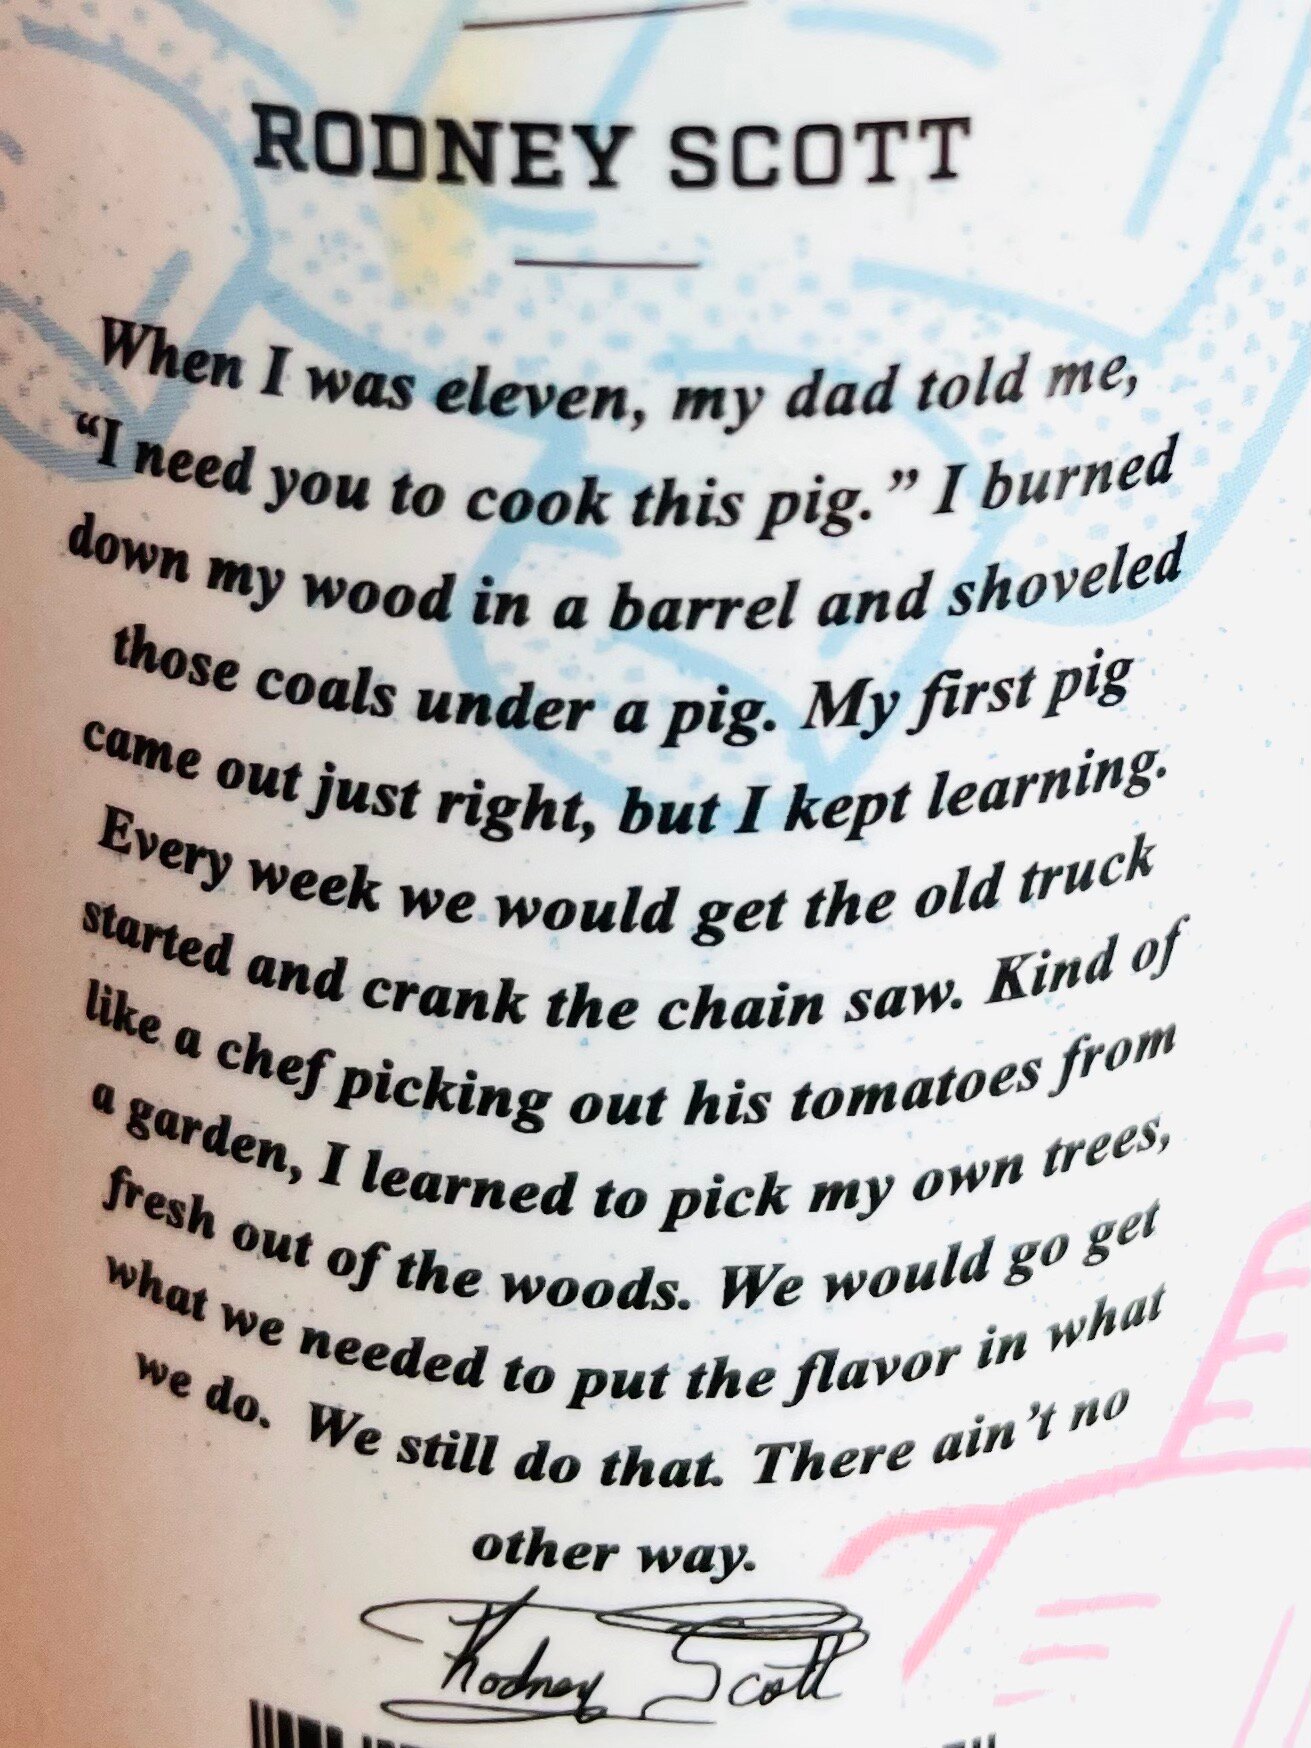 RODNEY SCOTT
When I was eleven, my dad told me,
“I need you to cook this pig.” I burned
down my wood in a barrel and shoveled
those coals under a pig. My first pig
came out just right, but I kept learning.
Every week we would get the old truck
started and crank the chain saw. Kind of
like a chef picking out his tomatoes from
a garden, I learned to pick my own trees,
fresh out of the woods. We would go get
what we needed to put the flavor in what
we do. We still do that. There ain’t no
other way.
Rodney Scott